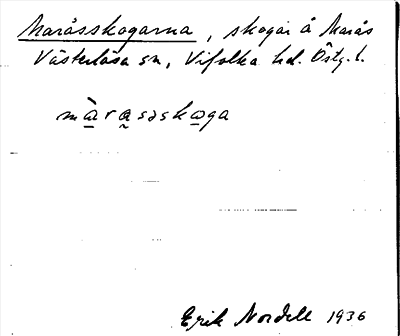 Maråsskogarna, skogar å Marås
Västerlösa sn, Vifolka hd. Östg. l.
mà̱ra̰səsko̱ga
Erik Nordell 1936